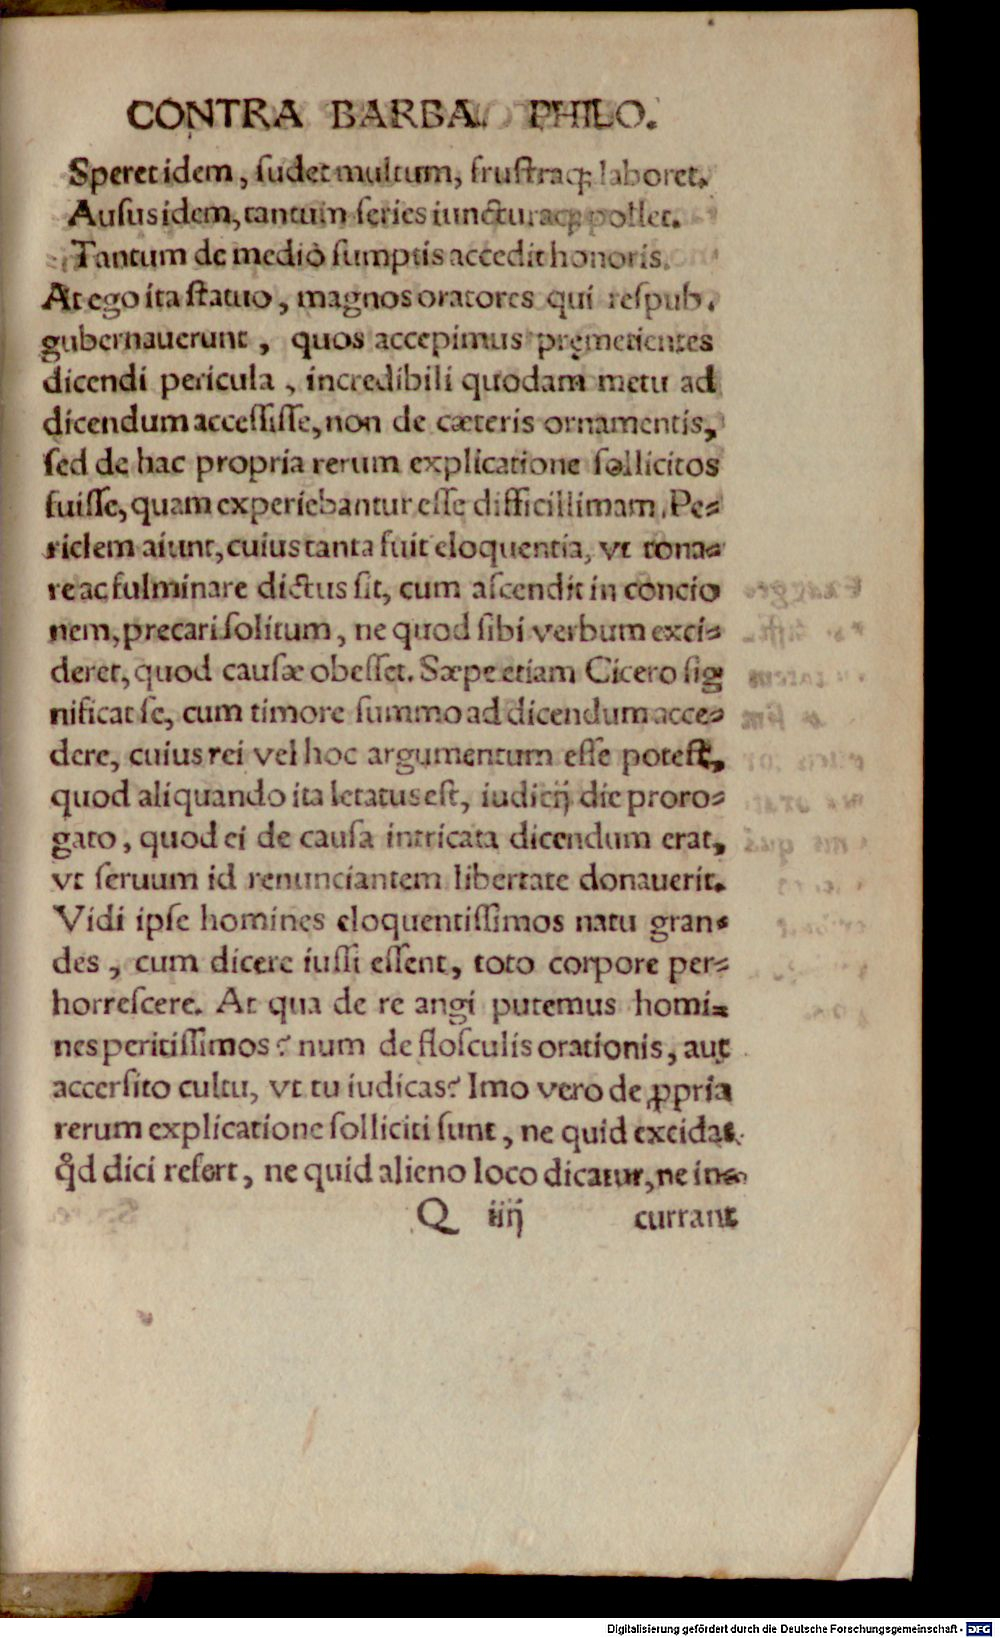 CONTRA BARBA. PHILO.
Speret idem, sudet multum, frustraq; laboret.
Ausus idem, tantum series iuncturaq; pollet.
Tantum de medio sumptis accedit honoris.
At ego ita statuo, magnos oratores qui respub.
gubernauerunt, quos accepimus pręmetientes
dicendi pericula, incredibili quodam metu ad
dicendum accessisse, non de cæteris ornamentis,
sed de hac propria rerum explicatione sollicitos
fuisse, quam experiebantur esse difficillimam. Pe⸗
riclem aiunt, cuius tanta fuit eloquentia, vt tona⸗
re ac fulminare dictus sit, cum ascendit in concio
nem, precari solitum, ne quod sibi verbum exci⸗
deret, quod causæ obesset. Sæpe etiam Cicero sig
nificat se, cum timore summo ad dicendum acce⸗
dere, cuius rei vel hoc argumentum esse potest,
quod aliquando ita letatus est, iudicij die proro⸗
gato, quod ei de causa intricata dicendum erat,
vt seruum id renunciantem libertate donauerit.
Vidi ipse homines eloquentissimos natu gran⸗
des, cum dicere iussi essent, toto corpore per⸗
horrescere. At qua de re angi putemus homi⸗
nes peritissimos? num de flosculis orationis, aut
accersito cultu, vt tu iudicas? Imo vero de ꝓpria
rerum explicatione solliciti sunt, ne quid excidat
qđ dici refert, ne quid alieno loco dicatur, ne in⸗
Q iiij currant
Digitalisierung gefördert durch die Deutsche Forschungsgemeinschaft - DFG